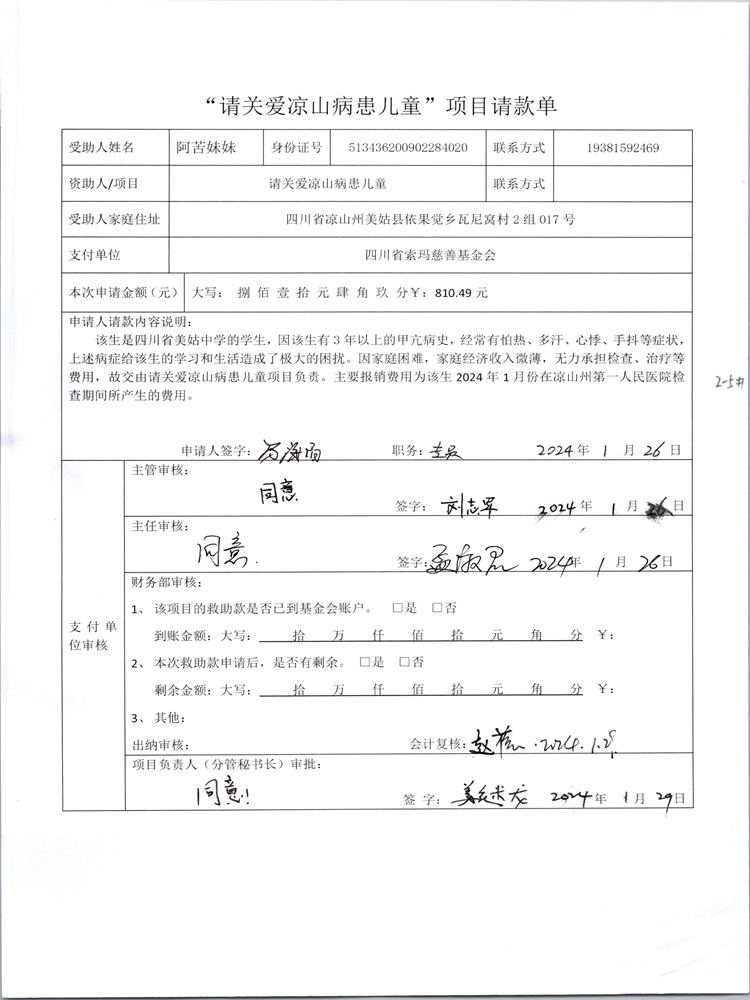 “请关爱凉山病患儿童”项目请款单
受助人姓名 阿苦妹妹 身份证号 513436200902284020 联系方式 19381592469
资助人/项目 请关爱凉山病患儿童 联系方式
受助人家庭住址 四川省凉山州美姑县依果觉乡瓦尼窝村2组017号
支付单位 四川省索玛慈善基金会
本次申请金额（元） 大写： 捌 佰 壹 拾 元 肆 角 玖 分￥：810.49 元
申请人请款内容说明：
该生是四川省美姑中学的学生，因该生有3年以上的甲亢病史，经常有怕热、多汗、心悸、手抖等症状，
上述病症给该生的学习和生活造成了极大的困扰。因家庭困难，家庭经济收入微薄，无力承担检查、治疗等
费用，故交由请关爱凉山病患儿童项目负责。主要报销费用为该生2024年1月份在凉山州第一人民医院检
查期间所产生的费用。
2-5#
申请人签字： 职务： 专员 2024年 1 月 26 日
支付单
位审核
主管审核：
同意
签字： 刘志军 2024年 1 月 26 日
主任审核：
同意.
签字： 2024年 1 月 26 日
财务部审核：
1、 该项目的救助款是否已到基金会账户。 □是 □否
到账金额：大写： 拾 万 仟 佰 拾 元 角 分 ￥：
2、 本次救助款申请后，是否有剩余。 □是 □否
剩余金额：大写： 拾 万 仟 佰 拾 元 角 分 ￥：
3、 其他：
出纳审核： 会计复核： 2024.1.29
项目负责人（分管秘书长）审批：
同意!
签 字： 2024年 1月 29日